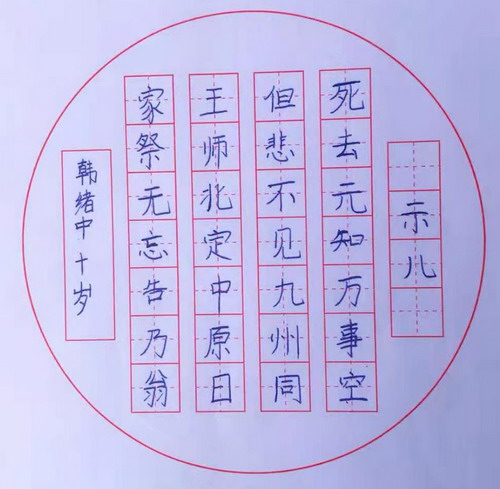 示儿
死去元知万事空
但悲不见九州同
王师北定中原日
家祭无忘告乃翁
韩绪中 十岁